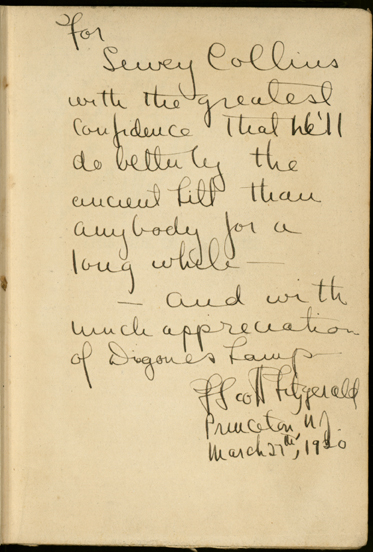 For
Sewey Collins
with the greatest
Confidence That he'll
do better by the
ancient Litt than
anybody for a
long while —
— and with
much appreciation
of Diogones Lamp
F Scott Fitzgerald
Princeton, N.J.
March 27th, 1920